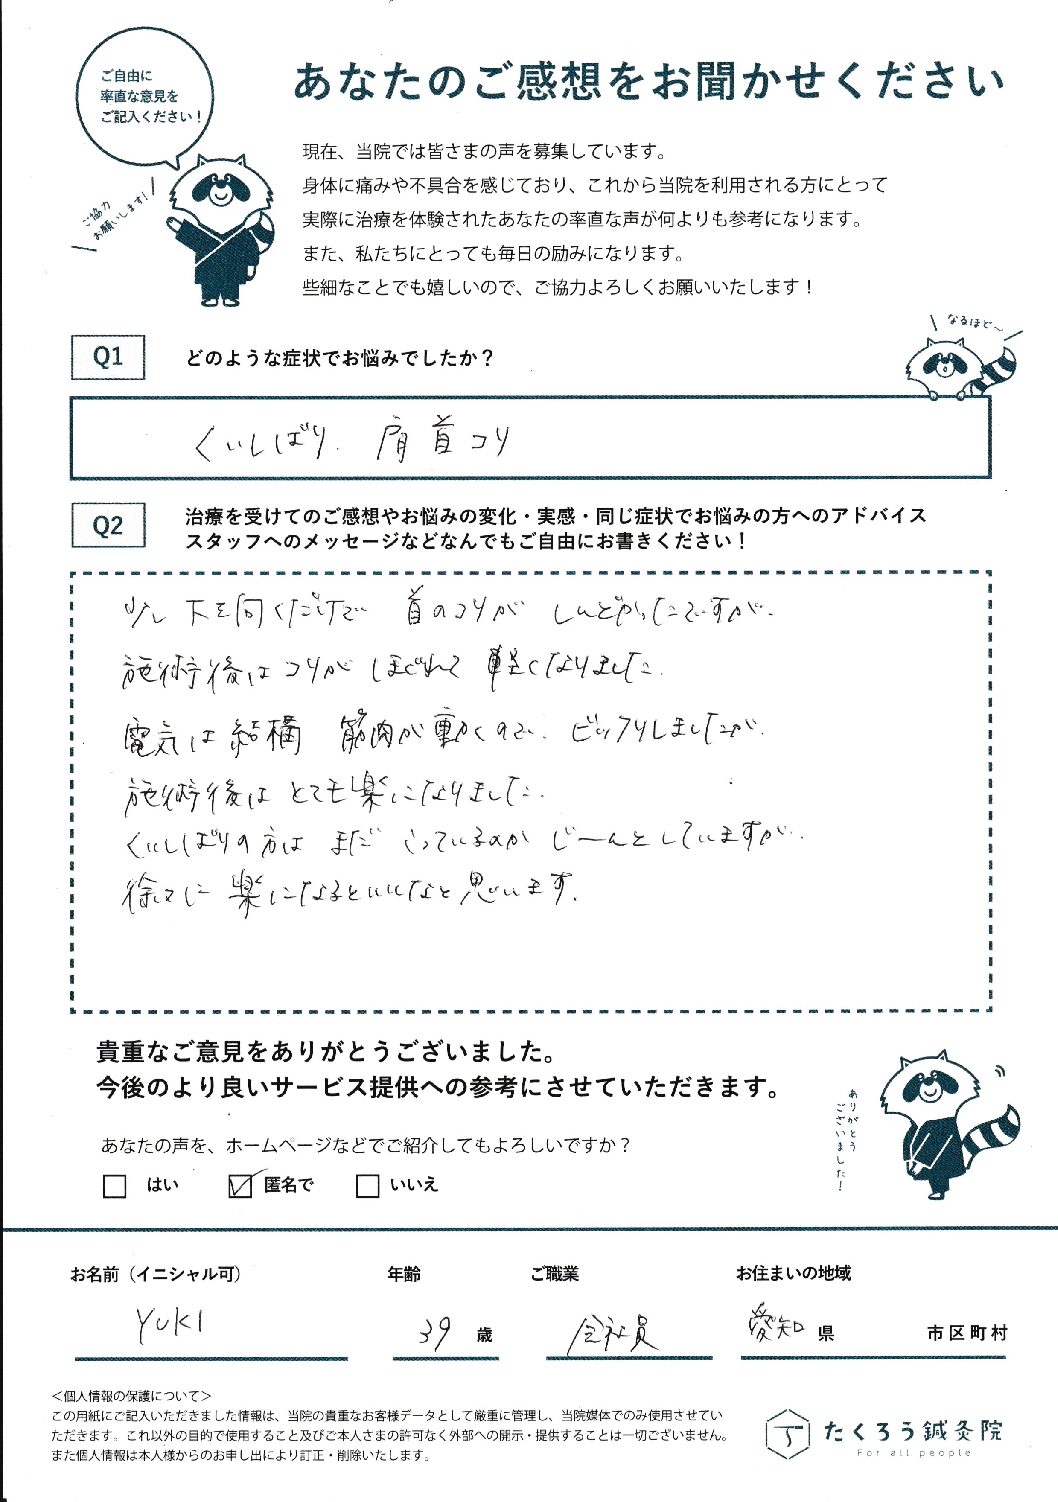 ご自由に
率直な意見を
ご記入ください！
ご協力
お願いします！
あなたのご感想をお聞かせください
現在、当院では皆さまの声を募集しています。
身体に痛みや不具合を感じており、これから当院を利用される方にとって
実際に治療を体験されたあなたの率直な声が何よりも参考になります。
また、私たちにとっても毎日の励みになります。
些細なことでも嬉しいので、ご協力よろしくお願いいたします！
なるほど〜
Q1 どのような症状でお悩みでしたか？
くいしばり、肩首コリ
Q2 治療を受けてのご感想やお悩みの変化・実感・同じ症状でお悩みの方へのアドバイス
スタッフへのメッセージなどなんでもご自由にお書きください！
少し下を向くだけで 首のコリが しんどかったですが、
施術後はコリが ほぐれて 軽くなりました。
電気は結構 筋肉が動くので、ビックリしましたが、
施術後は とても楽になりました。
くいしばりの方は まだ 残っているのか じーんとしていますが、
徐々に 楽になるといいなと思います。
貴重なご意見をありがとうございました。
今後のより良いサービス提供への参考にさせていただきます。
ありがとう
ございました！
あなたの声を、ホームページなどでご紹介してもよろしいですか？
はい 匿名で いいえ
お名前（イニシャル可） 年齢 ご職業 お住まいの地域
YUKI 39 歳 会社員 愛知 県 市区町村
＜個人情報の保護について＞
この用紙にご記入いただきました情報は、当院の貴重なお客様データとして厳重に管理し、当院媒体でのみ使用させてい
ただきます。これ以外の目的で使用すること及びご本人さまの許可なく外部への開示・提供することは一切ございません。
また個人情報は本人様からのお申し出により訂正・削除いたします。
たくろう鍼灸院
For all people